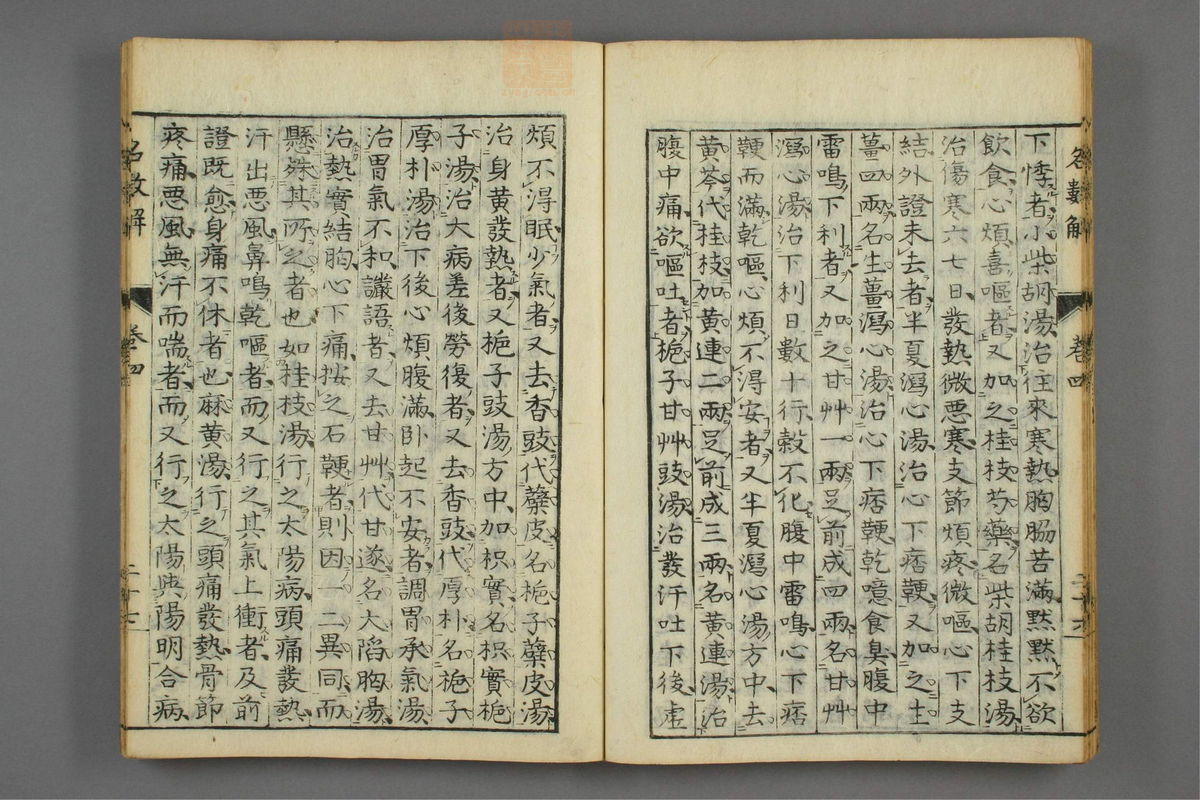 名數解
卷四
下悸者小柴胡湯治往來寒熱胸脇苦滿默默不欲
飲食心煩喜嘔者又加之桂枝芍藥名柴胡桂枝湯
治傷寒六七日發熱微惡寒支節煩疼微嘔心下支
結外證未去者半夏瀉心湯治心下痞鞕又加之生
薑四兩名生薑瀉心湯治心下痞鞕乾噫食臭腹中
雷鳴下利者又加之甘艸一兩足前成四兩名甘艸
瀉心湯治下利日數十行穀不化腹中雷鳴心下痞
鞕而滿乾嘔心煩不得安者又半夏瀉心湯方中去
黃芩代桂枝加黃連二兩足前成三兩名黃連湯治
腹中痛欲嘔吐者梔子甘艸豉湯治發汗吐下後虛
煩不得眠少氣者又去香豉代蘗皮名梔子蘗皮湯
治身黃發熱者又梔子豉湯方中加枳實名枳實梔
子湯治大病差後勞復者又去香豉代厚朴名梔子
厚朴湯治下後心煩腹滿卧起不安者調胃承氣湯
治胃氣不和讝語者又去甘艸代甘遂名大陷胸湯
治熱實結胸心下痛按之石鞕者則因一二異同而
懸殊其所之者也如桂枝湯行之太陽病頭痛發熱
汗出惡風鼻鳴乾嘔者而又行之其氣上衝者及前
證既愈身痛不休者也麻黃湯行之頭痛發熱骨節
疼痛惡風無汗而喘者而又行之太陽與陽明合病
名數解
卷四
二十七